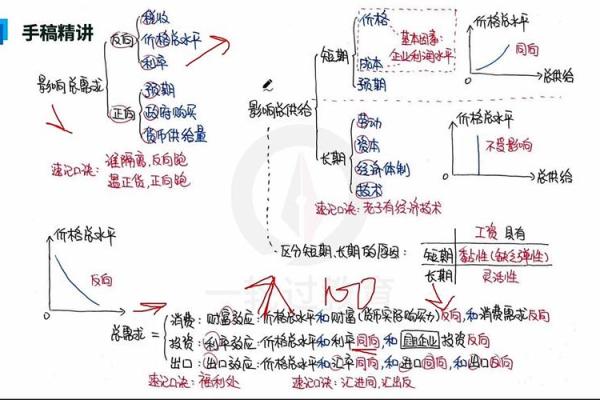 手稿精讲
影响总需求
反向
税收
价格总水平
利率
正向
预期
政府购买
货币供给量
速记口诀:
谁隔离,反向跑
温正货,正向跑
影响总供给
短期
价格
成本
预期
基本因素:
企业利润水平
长期
劳动
资本
经济体制
技术
速记口诀:老子有经济技术
价格总水平
同向
0
总供给
价格总水平
不受影响
0
总供给
区分短期、长期的原因:
工资具有
短期 黏性(缺乏弹性)
长期 灵活性
价格总水平
反向
0
总需求 =
消费:财富效应:价格总水平和财富(货币实际购买力)反向,和消费需求反向
投资:利率效应:价格总水平和利率同向,和企业投资反向
出口:出口效应:价格总水平和汇率同向,和进口同向,和出口反向
速记口诀:福利处
速记口诀:汇进同,汇出反